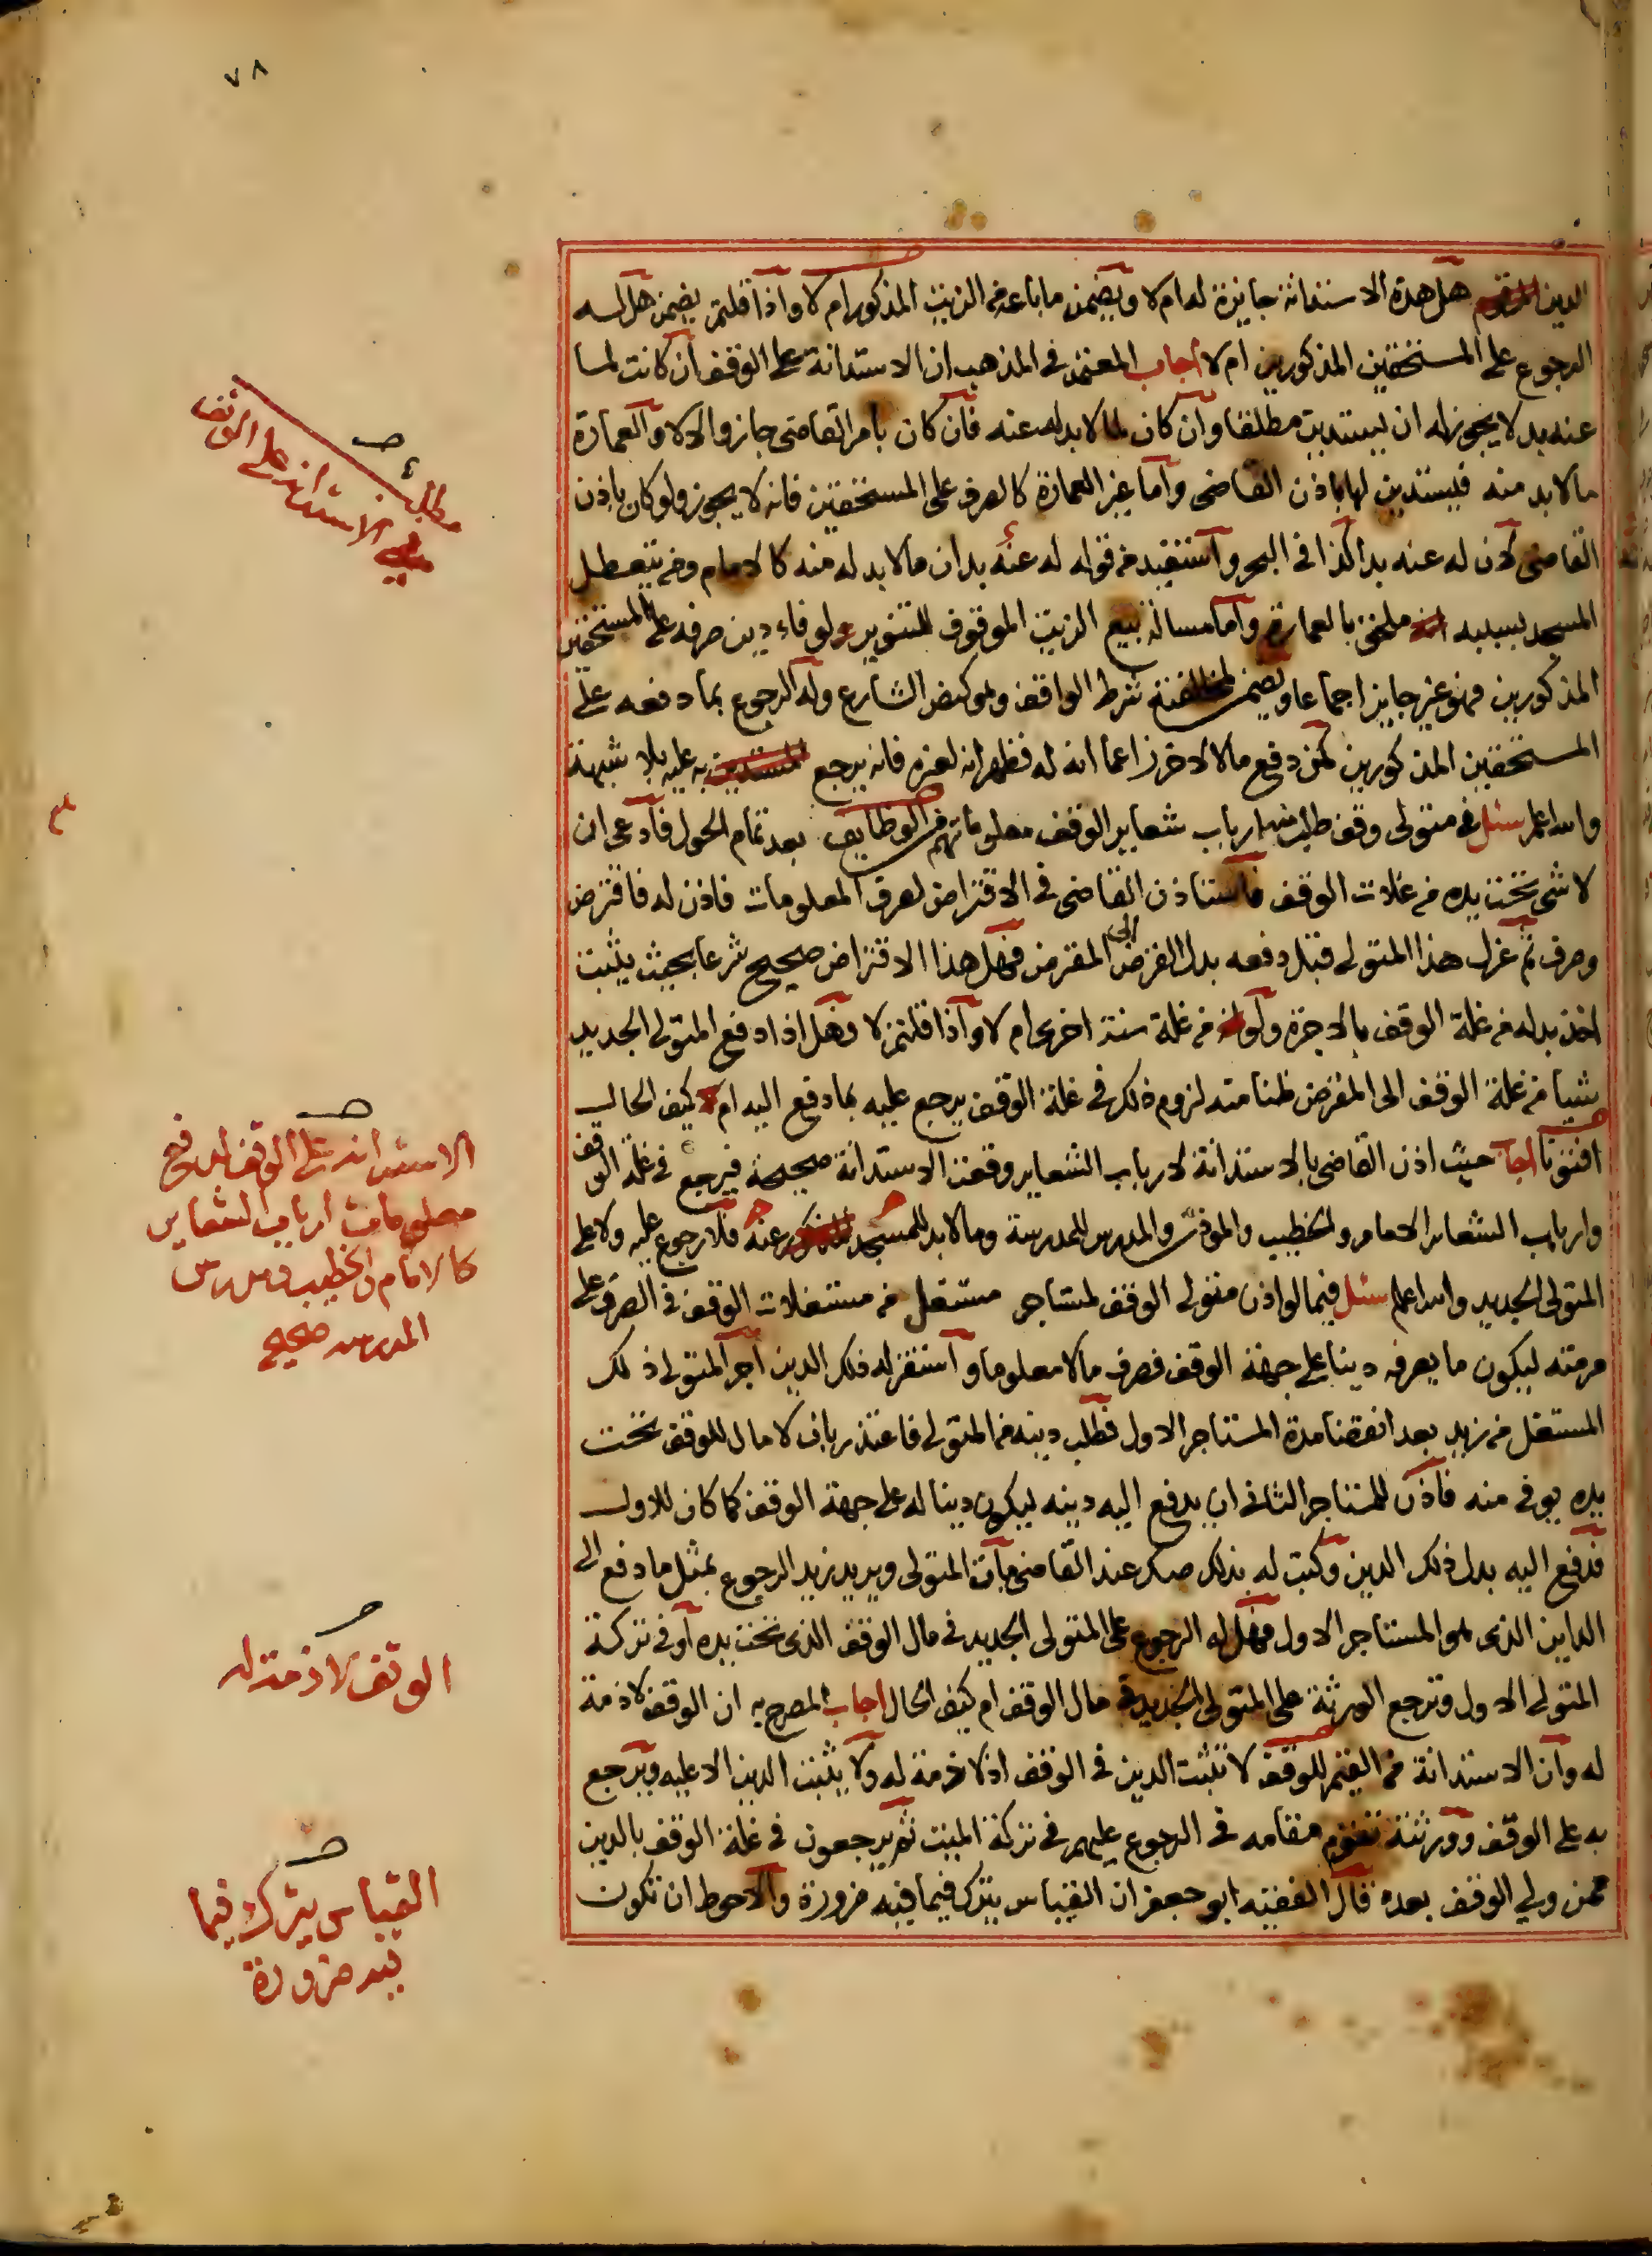 ٧٨
الدين هل هذه الاستدانة جايزة له ام لا ويضمن ما باعه من الزيت المذكور ام لا واذا قلتم يضمن هل له
الرجوع على المستحقين المذكورين ام لا اجاب المعتمد في المذهب ان الاستدانة على الوقف ان كانت لما
عنه بد لا يجوز له ان يستدين مطلقا وان كان لما لا بد له عنه فان كان بامر القاضي جاز والا لا والعمارة
ما لا بد منه فيستدين لها باذن القاضي واما غير العمارة كالصرف على المستحقين فانه لا يجوز ولو كان باذن
القاضي لان له عنه بدا كذا في البحر واستفيد من قوله له عنه بد ان ما لا بد له منه كالامام ومن يتعطل
المسجد بسببه ملحق بالعمارة واما مسالة بيع الزيت الموقوف للتنوير ولوفاء دين صرفه على المستحقين
المذكورين فهو غير جايز اجماعا ويضمن لمخالفته شرط الواقف وهو كنص الشارع وله الرجوع بما دفعه على
المستحقين المذكورين كمن دفع مالا لاخر زاعما انه له فظهر انه لغيره فانه يرجع به عليه بلا شبهة
والله اعلم سئل في متولى وقف طلب منه ارباب شعاير الوقف معلوماتهم في الوظايف بعد تمام الحول فادعى ان
لا شي تحت يده من غلات الوقف فاستاذن القاضي في الاقتراض لصرف المعلومات فاذن له فاقترض
وصرف ثم عزل هذا المتولى قبل دفعه بدل القرض الى المقرض فهل هذا الاقتراض صحيح شرعا بحيث يثبت
اخذ بدله من غلة الوقف بالاجرة ولو من غلة سنة اخرى ام لا واذا قلتم لا فهل اذا دفع المتولى الجديد
شيا من غلة الوقف الى المقرض ظنا منه لزوم ذلك في غلة الوقف يرجع عليه بما دفع اليه ام كيف الحال
افتونا اجاب حيث اذن القاضي بالاستدانة لارباب الشعاير وقعت الاستدانة صحيحة فيرجع في غلة الوقف
وارباب الشعاير الامام والخطيب والموذن والمدرس للمدرسة وما لا بد للمسجد عنه فلا رجوع عليه ولا على
المتولى الجديد والله اعلم سئل فيما لو اذن متولى الوقف لمستاجر مستغل من مستغلات الوقف في الصرف على
مرمته ليكون ما يصرفه دينا على جهة الوقف فصرف مالا معلوما واستقر له ذلك الدين اجر المتولى ذلك
المستغل من زيد بعد انقضا مدة المستاجر الاول فطلب دينه من المتولى فاعتذر بان لا مال للوقف تحت
يده يوفي منه فاذن للمستاجر الثاني ان يدفع اليه دينه ليكون دينا له على جهة الوقف كما كان للاول
فدفع اليه بدل ذلك الدين وكتب له بذلك صك عند القاضي مات المتولى ويريد زيد الرجوع بمثل ما دفع الى
الداين الذي هو المستاجر الاول فهل له الرجوع على المتولى الجديد في مال الوقف الذي تحت يده او في تركة
المتولى الاول وترجع الورثة على المتولى الجديد في مال الوقف ام كيف الحال اجاب المصرح به ان الوقف لا ذمة
له وان الاستدانة من القيم للوقف لا تثبت الدين في الوقف اذ لا ذمة له ولا يثبت الدين الا عليه ويرجع
به على الوقف وورثته تقوم مقامه في الرجوع عليهم في تركة الميت ثم يرجعون في غلة الوقف بالدين
ممن ولي الوقف بعده قال الفقيه ابو جعفر ان القياس يترك فيما فيه ضرورة والاحوط ان تكون
مطلب
في الاستدانة على الوقف
الاستدانة على الوقف لدفع
معلومات ارباب الشعاير
كالامام والخطيب ومدرس
المدرسه صحيح
الوقف لا ذمة له
القياس يترك فيما
فيه ضرورة